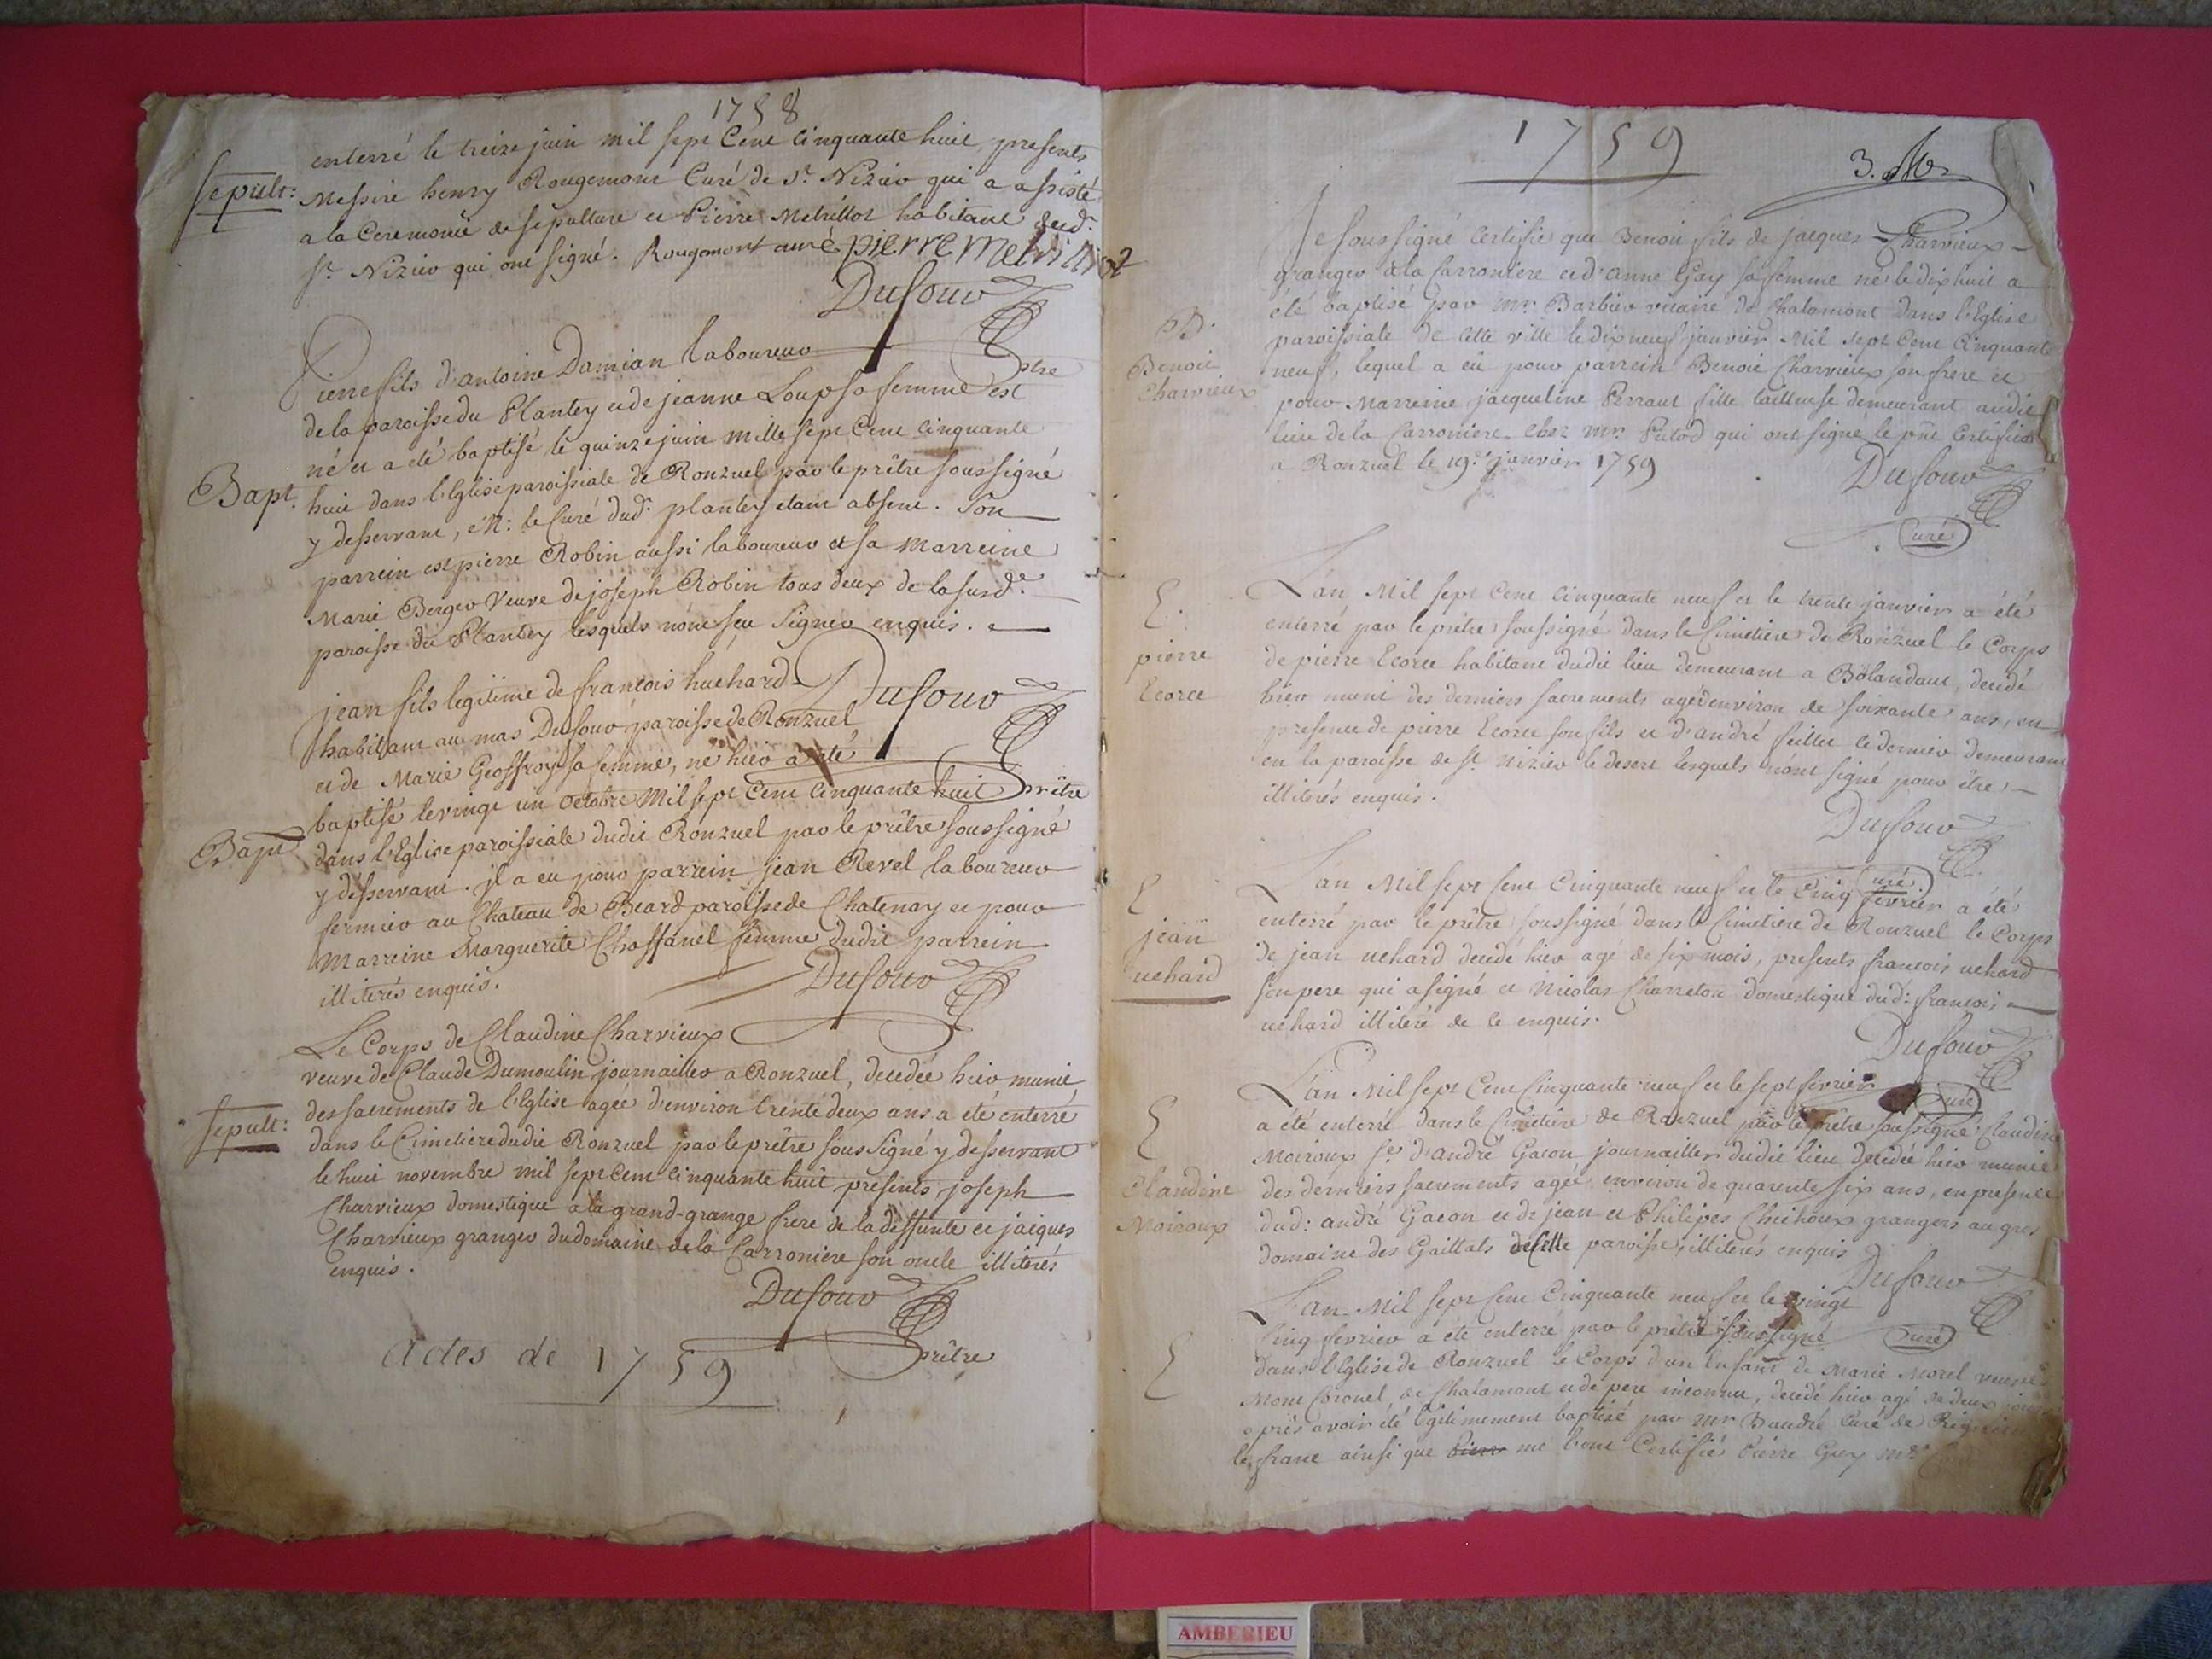 1758
enterré le treize juin mil sept Cent Cinquante huit, presents
Sepult:
Messire henry Rougemont Curé de St. Nizier qui a assisté
a la Ceremonie de sepulture et Pierre Metrillot habitant dud.
St. Nizier qui ont signé. Rougemont curé pierre
Dufour
ptre
Pierre fils d'antoine Damian laboureur
de la paroisse du Plantey et de jeanne Loup sa femme est
né et a été baptisé le quinze juin mille sept Cent Cinquante
Bapt.
huit dans l'Eglise paroissiale de Ronzuel par le prêtre soussigné
y desservant, Mr: le Curé dud: plantey etant absent. Son
parrein est pierre Robin aussi laboureur et sa Marreine
Marie Berger Veuve de joseph Robin tous deux de la susd.e
paroisse du Plantey lesquels n'ont seu signer enquis.
jean fils legitime de françois huchard
Dufour
habitant au mas Dufour paroisse de Ronzuel
et de Marie Geoffroy sa femme, né hier a été
prêtre
baptisé le vingt un octobre Mil sept Cent Cinquante huit
Bapt
dans l'Eglise paroissiale dudit Ronzuel par le prêtre soussigné
y desservant. il a eu pour parrein jean Revel laboureur
fermier au Chateau de Beard paroisse de Chatenay et pour
Marreine Marguerite Chaffanel femme dudit parrein
illiterés enquis.
Dufour
Le Corps de Claudine Charvieux
veuve de Claude Dumoulin journailler a Ronzuel, decedée hier munie
des sacrements de l'Eglise agée d'environ trente deux ans a été enterré
Sepult:
dans le Cimetiere dudit Ronzuel par le prêtre sous signé y desservant
le huit novembre mil sept Cent Cinquante huit presents joseph
Charvieux domestique a la grand-grange frere de la deffunte et jacques
Charvieux granger du domaine de la Carroniere son oncle illiterés
enquis.
Dufour
prêtre
Actes de 1759
1759
3.
Je soussigné Certifie que Benoit fils de jacques Charvieux
granger a la Carroniere et d'anne Gay sa femme né le dix huit a
été baptisé par Mr. Barbier vicaire de Chalamont dans l'Eglise
B.
Benoit
Charvieux
paroissiale de Cette ville le dix neuf janvier Mil sept Cent Cinquante
neuf, lequel a eû pour parrein Benoit Charvieux son frere et
pour Marreine jacqueline Perraut fille tailleuse demeurant audit
lieu de la Carroniere Chez Mr. Putod qui ont signé le pnt Certificat
a Ronzuel le 19.e janvier 1759
Dufour
Curé
L'an Mil sept Cent Cinquante neuf et le trente janvier a été
E.
pierre
Ecorce
enterré par le prêtre soussigné dans le Cimetiere de Ronzuel le Corps
de pierre Ecorce habitant dudit lieu demeurant a Bolandant, decedé
hier muni des derniers sacrements agé d'environ de soixante ans, en
presence de pierre Ecorce son fils et d'andré feillet ce dernier demeurant
en la paroisse de St. Nizier le desert lesquels n'ont signé pour être
illiterés enquis.
Dufour
Curé
L'an Mil sept Cent Cinquante neuf et le Cinq fevrier a été
E
jean
uchard
enterré par le prêtre soussigné dans le Cimetiere de Ronzuel le Corps
de jean uchard decedé hier agé de six mois, presents françois uchard
son pere qui a signé et Nicolas Charreton domestique dud: françois
uchard illiteré de ce enquis.
Dufour
Curé
L'an Mil sept Cent Cinquante neuf et le sept fevrier
E
Claudine
Moiroux
a été enterré dans le Cimetiere de Ronzuel par le prêtre soussigné Claudine
Moiroux fe. d'andré Gacon journailler dudit lieu decedée hier munie
des derniers sacrements agée environ de quarente six ans, en presence
dud: andré Gacon et de jean et Philipes Chichoux grangers au gros
domaine des Gaillats de Cette paroisse, illiterés enquis
Dufour
Curé
L'an Mil sept Cent Cinquante neuf et le vingt
E
Cinq fevrier a été enterré par le prêtre soussigné
dans l'Eglise de Ronzuel le Corps d'un Enfant de Marie Morel veuve
Mont Coronel, de Chalamont et de pere inconnu, decedé hier agé de deux jours
après avoir été legitimement baptisé par Mr Baudré Curé de
le franc ainsi que me l'ont Certifié Pierre Guy
AMBERIEU